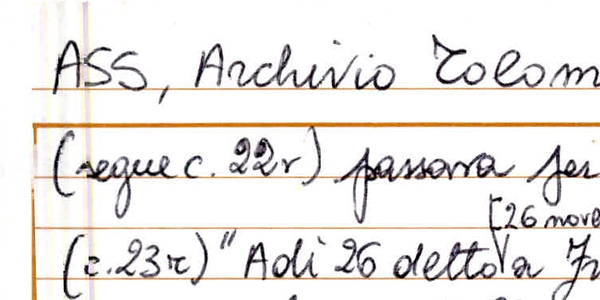 ASS, Archivio Tolom
(segue c. 22r) passava per
[26 nove
(c. 23r) "Adì 26 detto la Fr